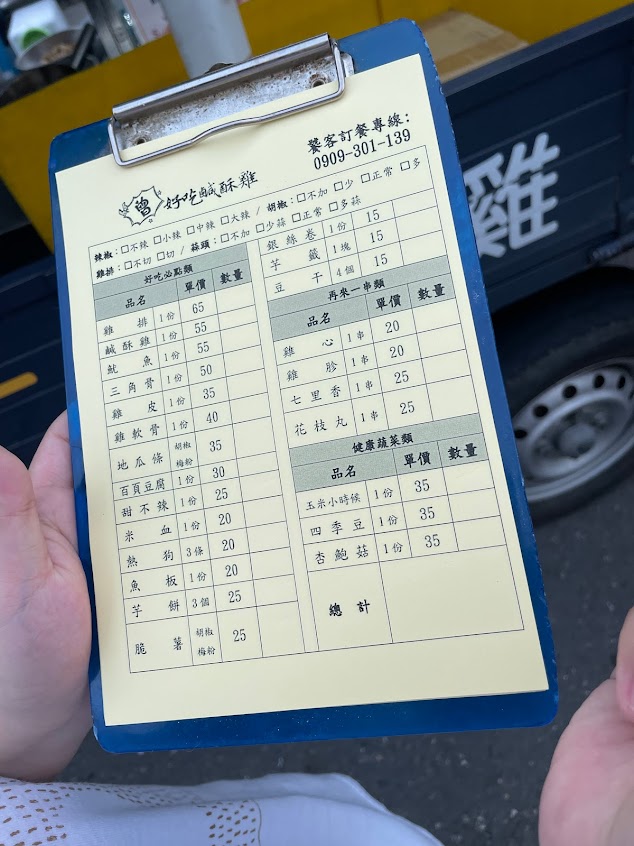 饕客訂餐專線:
0909-301-139
曾 好吃鹹酥雞
辣椒:□不辣 □小辣 □中辣 □大辣 / 胡椒:□不加 □少 □正常 □多
雞排:□不切 □切 / 蒜頭:□不加 □少蒜 □正常 □多蒜
好吃必點類
品名 單價 數量
雞排 1份 65
鹹酥雞 1份 55
魷魚 1份 55
三角骨 1份 50
雞皮 1份 35
雞軟骨 1份 40
地瓜條 胡椒 梅粉 35
百頁豆腐 1份 30
甜不辣 1份 25
米血 1份 20
熱狗 3條 20
魚板 1份 20
芋餅 3個 25
脆薯 胡椒 梅粉 25
銀絲卷 1份 15
芋籤 1塊 15
豆干 4個 15
再來一串類
品名 單價 數量
雞心 1串 20
雞胗 1串 20
七里香 1串 25
花枝丸 1串 25
健康蔬菜類
品名 單價 數量
玉米小時候 1份 35
四季豆 1份 35
杏鮑菇 1份 35
總計
雞